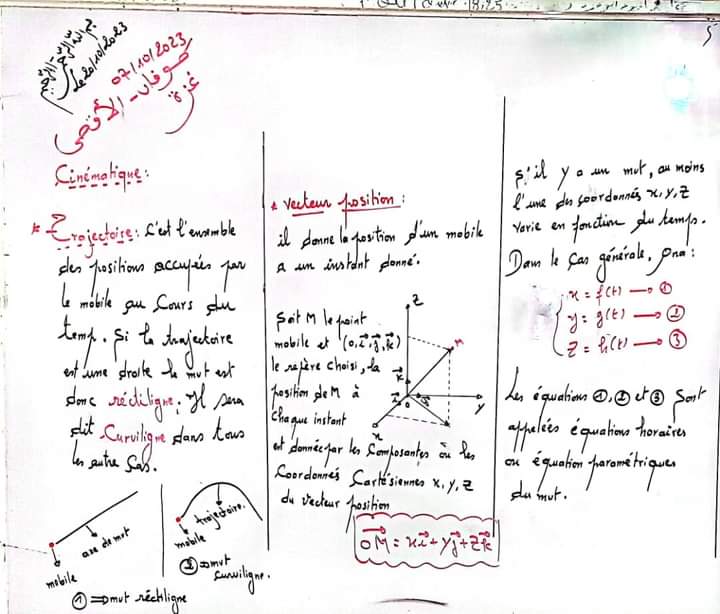 بسم الله الرحمن الرحيم
le 20/10/2023
07/10/2023
طوفان - الأقصى
غزة
5
Cinématique:
* Trajectoire: C'est l'ensemble
des positions occupées par
le mobile au cours du
temp. Si la trajectoire
est une droite le mvt est
donc réctiligne, Il sera
dit Curviligne dans tous
les autre cas.
mobile
axe de mvt
① ⇒ mvt réctiligne
trajectoire.
mobile
② ⇒ mvt
curviligne.
* Vecteur position:
il donne la position d'un mobile
a un instant donné.
Soit M le point
mobile et (o,i⃗,j⃗,k⃗)
le repère choisi, la
position de M à
chaque instant
est donnée par les composantes où les
Coordonnés Cartésiennes x, y, z
du vecteur position
z
M
k⃗
i⃗
o
j⃗
y
x
OM⃗ = xi⃗ + yj⃗ + zk⃗
s'il y a un mvt, au moins
l'une des coordonnés x, y, z
varie en fonction du temps.
Dans le cas générale, ona:
x = f(t) → ①
y = g(t) → ②
z = h(t) → ③
Les équations ①, ② et ③ sont
appelées équations horaires
ou équation paramétriques
du mvt.